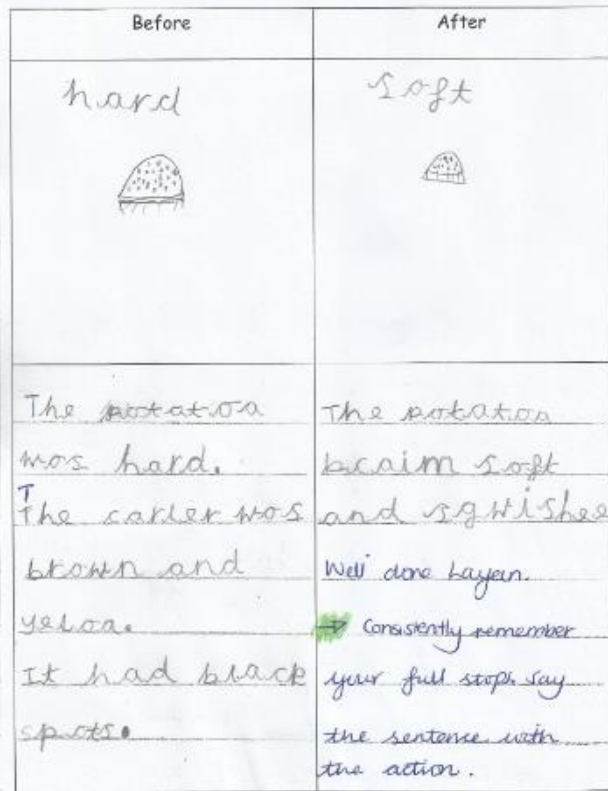 Before
After
hard
soft
The potatoa
was hard.
T
The carler was
brown and
yeloa.
It had black
spots.
The potatoa
bcaim soft
and sqwishee
Well done Layan.
→ Consistently remember
your full stops. Say
the sentence with
the action.